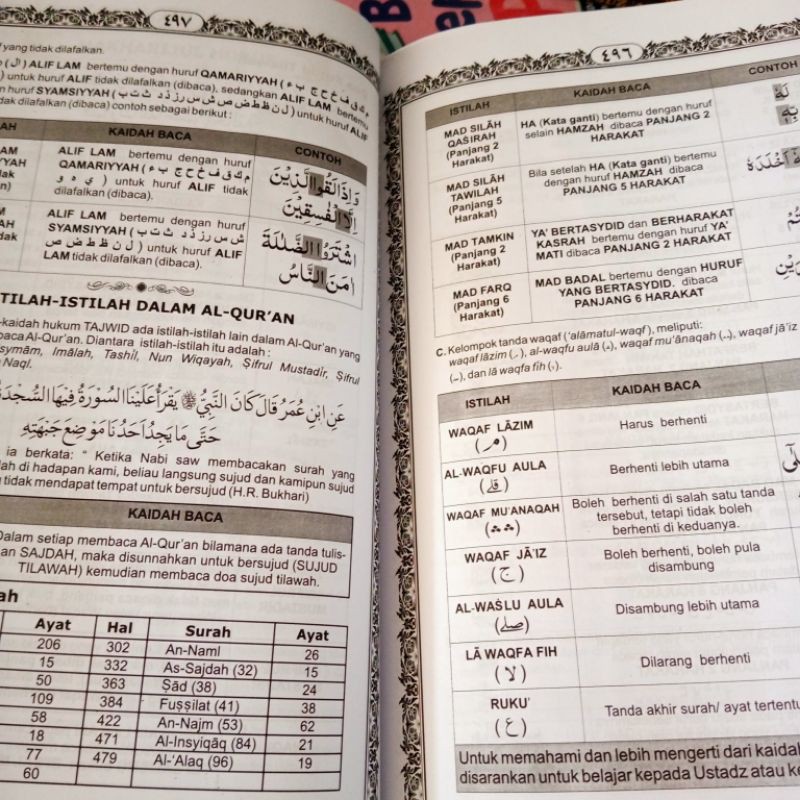 ٤٩٦
ISTILAH KAIDAH BACA CONTOH
MAD SILAH
QASIRAH
(Panjang 2
Harakat)
HA (Kata ganti) bertemu dengan huruf
selain HAMZAH dibaca PANJANG 2
HARAKAT
MAD SILAH
TAWILAH
(Panjang 5
Harakat)
Bila setelah HA (Kata ganti) bertemu
dengan huruf HAMZAH dibaca
PANJANG 5 HARAKAT
MAD TAMKIN
(Panjang 2
Harakat)
YA' BERTASYDID dan BERHARAKAT
KASRAH bertemu dengan huruf YA'
MATI dibaca PANJANG 2 HARAKAT
MAD FARQ
(Panjang 6
Harakat)
MAD BADAL bertemu dengan HURUF
YANG BERTASYDID. dibaca
PANJANG 6 HARAKAT
C. Kelompok tanda waqaf ('alāmatul-waqf), meliputi:
waqaf lāzim (مـ), al-waqfu aulā (قلى), waqaf mu'ānaqah (؞), waqaf jā'iz
(صلى), dan lā waqfa fih (لا).
ISTILAH KAIDAH BACA
WAQAF LĀZIM
(مـ)
Harus berhenti
AL-WAQFU AULA
(قلى)
Berhenti lebih utama
WAQAF MU'ANAQAH
(؞ ؞)
Boleh berhenti di salah satu tanda
tersebut, tetapi tidak boleh
berhenti di keduanya.
WAQAF JĀ'IZ
(ج)
Boleh berhenti, boleh pula
disambung
AL-WAṢLU AULA
(صلى)
Disambung lebih utama
LĀ WAQFA FIH
(لا)
Dilarang berhenti
RUKU'
(ع)
Tanda akhir surah/ ayat tertentu
Untuk memahami dan lebih mengerti dari kaidah
disarankan untuk belajar kepada Ustadz atau
٤٩٧
yang tidak dilafalkan.
(ال) ALIF LAM bertemu dengan huruf QAMARIYYAH (ء ب ج ح خ ف ق ك م
) untuk huruf ALIF tidak dilafalkan (dibaca), sedangkan ALIF LAM bertemu
huruf SYAMSIYYAH (ت ث د ذ ر ز س ش ص ض ط ظ ن ل) untuk huruf ALIF
dilafalkan (dibaca) contoh sebagai berikut :
KAIDAH BACA CONTOH
ALIF LAM bertemu dengan huruf
QAMARIYYAH (ء ب ج ح خ ف ق ك م
و ه ي) untuk huruf ALIF tidak
dilafalkan (dibaca).
وَإِذَا لَقُوا الَّذِيْنَ
إِلَّا الْفٰسِقِيْنَ
ALIF LAM bertemu dengan huruf
SYAMSIYYAH (ت ث د ذ ر ز س ش
ص ض ط ظ ن ل) untuk huruf ALIF
LAM tidak dilafalkan (dibaca).
اشْتَرَوُا الضَّلٰلَةَ
اٰمَنَ النَّاسُ
ISTILAH-ISTILAH DALAM AL-QUR'AN
kaidah hukum TAJWID ada istilah-istilah lain dalam Al-Qur'an yang
baca Al-Qur'an. Diantara istilah-istilah itu adalah :
Isymām, Imālah, Tashil, Nun Wiqayah, Şifrul Mustadir, Şifrul
Naql.
عَنِ ابْنِ عُمَرَ قَالَ كَانَ النَّبِيُّ ﷺ يَقْرَأُ عَلَيْنَا السُّوْرَةُ فِيْهَا السُّجْدَةُ
حَتَّى مَا يَجِدُ اَحَدُنَا مَوْضِعَ جَبْهَتِهِ
ia berkata: " Ketika Nabi saw membacakan surah yang
di hadapan kami, beliau langsung sujud dan kamipun sujud
tidak mendapat tempat untuk bersujud (H.R. Bukhari)
KAIDAH BACA
Dalam setiap membaca Al-Qur'an bilamana ada tanda tulis-
an SAJDAH, maka disunnahkan untuk bersujud (SUJUD
TILAWAH) kemudian membaca doa sujud tilawah.
Ayat Hal Surah Ayat
206 302 An-Naml 26
15 332 As-Sajdah (32) 15
50 363 Ṣād (38) 24
109 384 Fuṣṣilat (41) 38
58 422 An-Najm (53) 62
18 471 Al-Insyiqāq (84) 21
77 479 Al-'Alaq (96) 19
60